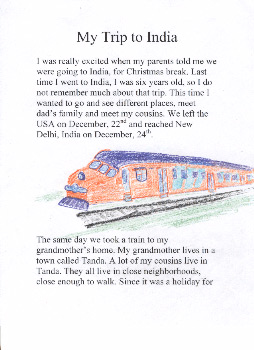 My Trip to India
I was really excited when my parents told me we
were going to India, for Christmas break. Last
time I went to India, I was six years old, so I do
not remember much about that trip. This time I
wanted to go and see different places, meet
dad's family and meet my cousins. We left the
USA on December, 22nd and reached New
Delhi, India on December, 24th.
The same day we took a train to my
grandmother's home. My grandmother lives in a
town called Tanda. A lot of my cousins live in
Tanda. They all live in close neighborhoods,
close enough to walk. Since it was a holiday for